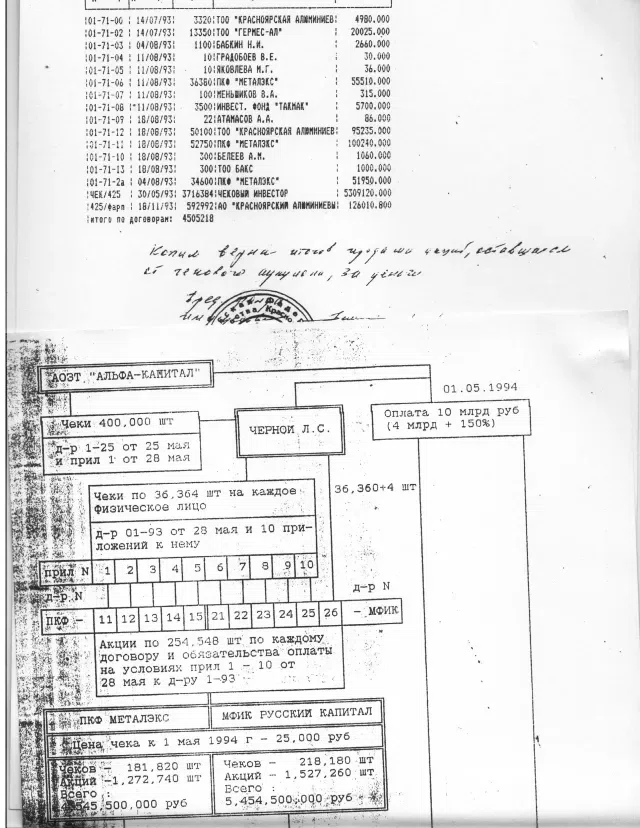 01-71-00 14/07/93 3320 ТОО "КРАСНОЯРСКАЯ АЛЮМИНИЕВ 4980.000
01-71-02 14/07/93 13350 ТОО "ГЕРМЕС-АЛ" 20025.000
01-71-03 04/08/93 1100 БАБКИН Н.И. 2660.000
01-71-04 11/08/93 10 ГРАДОБОЕВ В.Е. 30.000
01-71-05 11/08/93 10 ЯКОВЛЕВА М.Г. 36.000
01-71-06 11/08/93 36380 ПКФ "МЕТАЛЭКС" 55510.000
01-71-07 11/08/93 100 МЕНЬШИКОВ В.А. 315.000
01-71-08 11/08/93 3500 ИНВЕСТ. ФОНД "ТАКМАК" 5700.000
01-71-09 18/08/93 22 АТАМАСОВ А.А. 86.000
01-71-12 18/08/93 50100 ТОО "КРАСНОЯРСКАЯ АЛЮМИНИЕВ 95235.000
01-71-11 18/08/93 52750 ПКФ "МЕТАЛЭКС" 100240.000
01-71-10 18/08/93 300 БЕЛЕЕВ А.М. 1060.000
01-71-13 18/08/93 300 ТОО БАКС 1000.000
01-71-2а 04/08/93 34600 ПКФ "МЕТАЛЭКС" 51950.000
ЧЕК/425 30/05/93 3716384 ЧЕКОВЫЙ ИНВЕСТОР 5309120.000
425/фарп 18/11/93 592992 АО "КРАСНОЯРСКИЙ АЛЮМИНИЕВЫ 126010.800
итого по договорам: 4505218
Копия верна итогов продажи акций, оставшихся
от чекового аукциона, за деньги
Пред.
АОЗТ "АЛЬФА-КАПИТАЛ"
01.05.1994
Чеки 400,000 шт
д-р 1-25 от 25 мая
и прил 1 от 28 мая
ЧЕРНОЙ Л.С.
Оплата 10 млрд руб
(4 млрд + 150%)
Чеки по 36,364 шт на каждое
физическое лицо
36,360+4 шт
д-р 01-93 от 28 мая и 10 при-
ложений к нему
прил N 1 2 3 4 5 6 7 8 9 10
д-р N д-р N
ПКФ - 11 12 13 14 15 21 22 23 24 25 26 - МФИК
Акции по 254,548 шт по каждому
договору и обязательства оплаты
на условиях прил 1 - 10 от
28 мая к д-ру 1-93
ПКФ МЕТАЛЭКС МФИК РУССКИЙ КАПИТАЛ
Цена чека к 1 мая 1994 г - 25,000 руб
Чеков - 181,820 шт
Акций -1,272,740 шт
Всего :
4,545,500,000 руб
Чеков - 218,180 шт
Акций - 1,527,260 шт
Всего :
5,454,500,000 руб